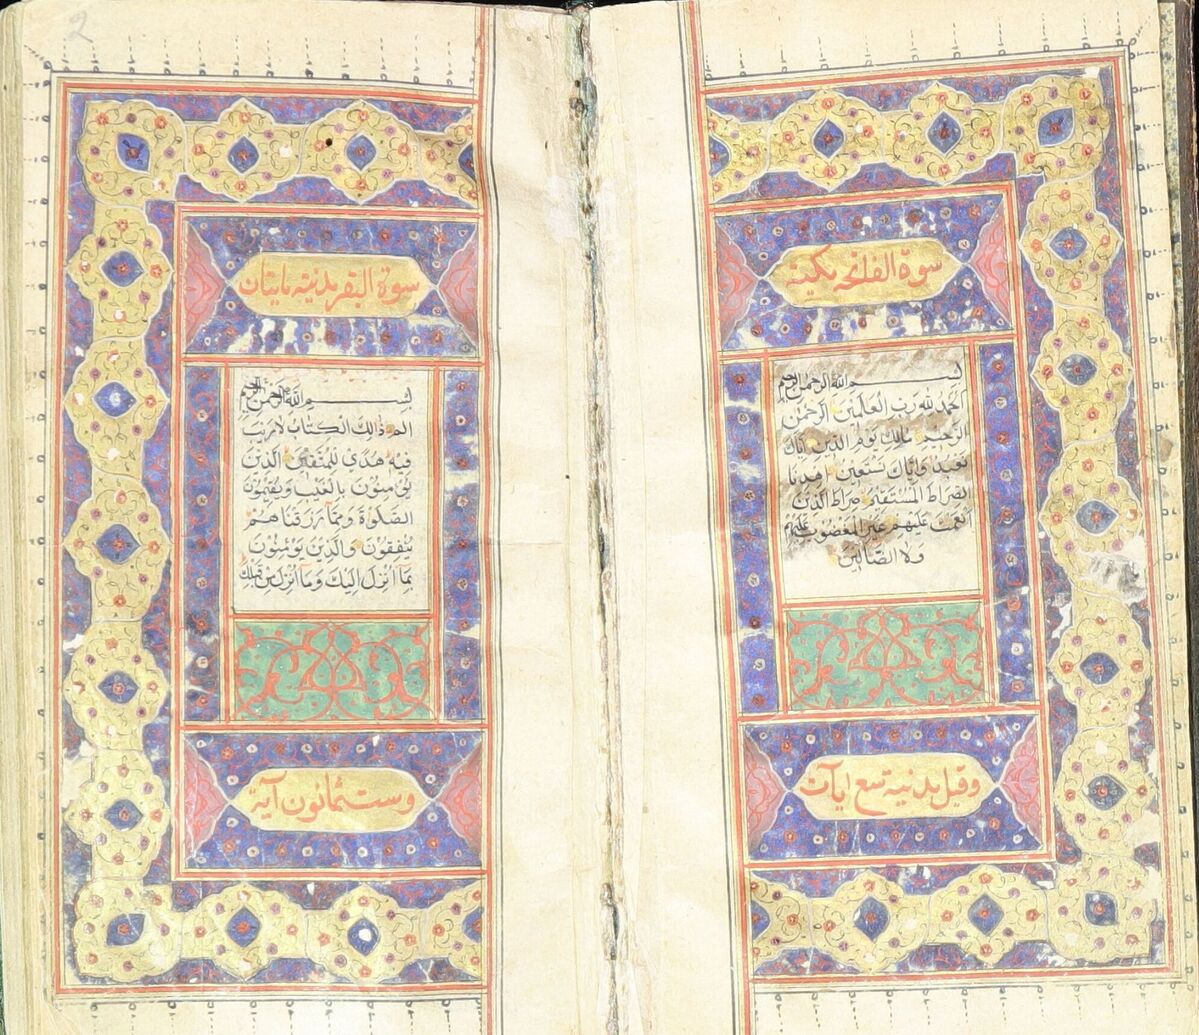 سورة الفاتحه مكية
بسم الله الرحمن الرحيم
الحمد لله رب العالمين الرحمن
الرحيم مالك يوم الدين اياك
نعبد واياك نستعين اهدنا
الصراط المستقيم صراط الذين
انعمت عليهم غير المغضوب عليهم
ولا الضالين
وقيل مدنية سبع ايات
سورة البقر مدنية مايتان
بسم الله الرحمن الرحيم
الم ذالك الكتاب لا ريب
فيه هدى للمتقين الذين
يؤمنون بالغيب ويقيمون
الصلوة ومما رزقناهم
ينفقون والذين يؤمنون
بما انزل اليك وما انزل من قبلك
وست ثمانون آية
2